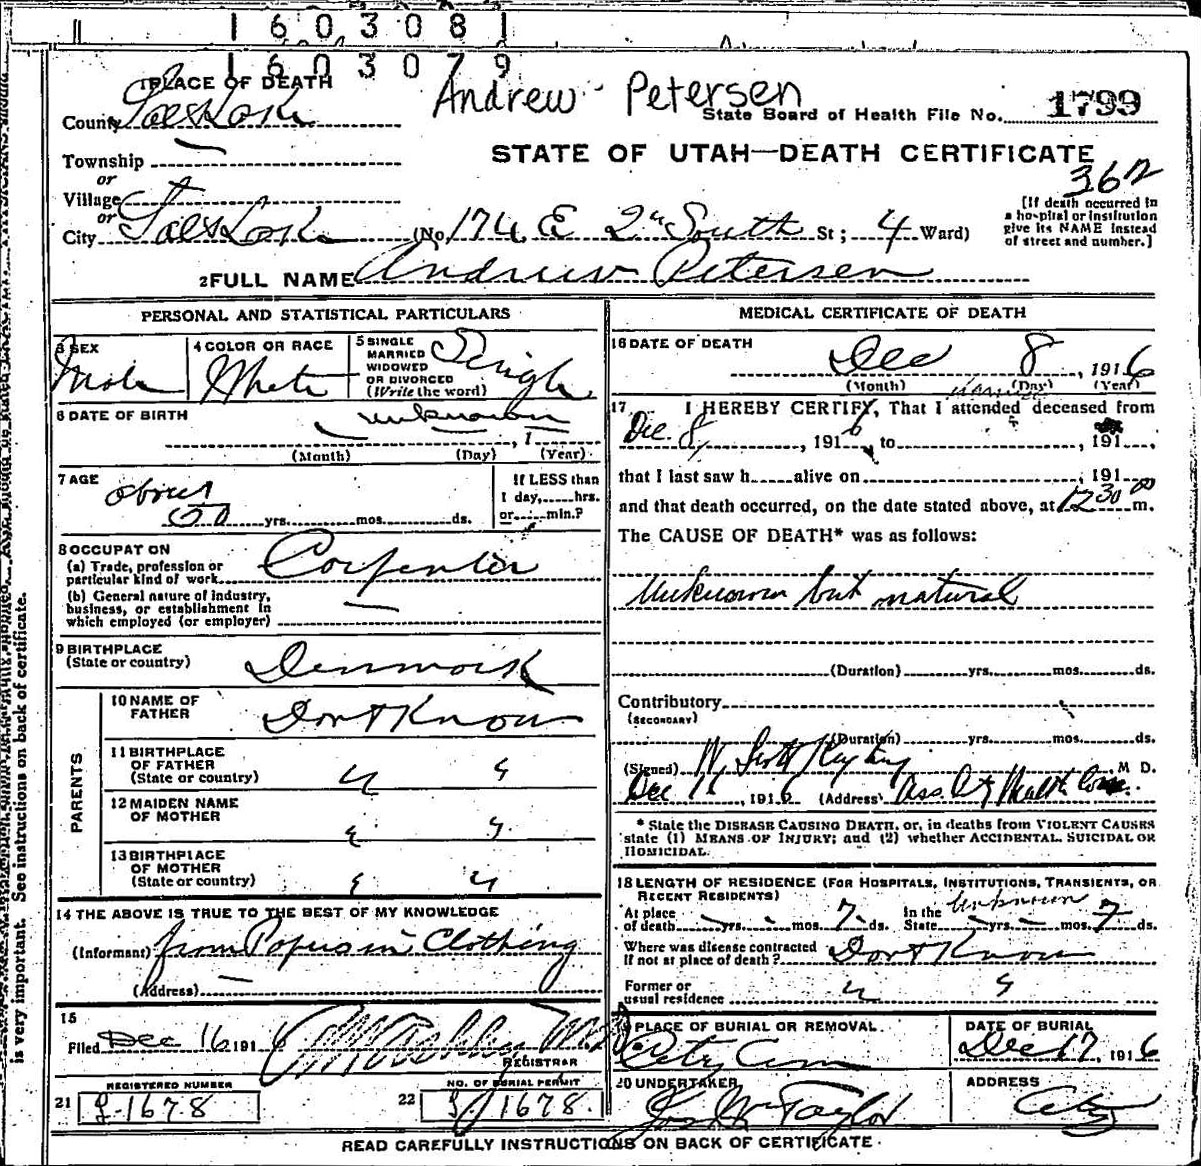 1603081
1603079
1 PLACE OF DEATH
Andrew Petersen
County Salt Lake
State Board of Health File No. 1799
Township
STATE OF UTAH—DEATH CERTIFICATE
or
362
Village
or
City Salt Lake (No. 174 E 2nd South St; 4 Ward)
[If death occurred in a hospital or institution give its NAME instead of street and number.]
2 FULL NAME Andrew Petersen
PERSONAL AND STATISTICAL PARTICULARS
3 SEX
Male
4 COLOR OR RACE
White
5 SINGLE
MARRIED
WIDOWED
OR DIVORCED
(Write the word)
Single
6 DATE OF BIRTH
unknown
, 1
(Month) (Day) (Year)
7 AGE
about
50 yrs. mos. ds.
If LESS than
1 day, hrs.
or min.?
8 OCCUPATION
(a) Trade, profession or
particular kind of work
Carpenter
(b) General nature of industry,
business, or establishment in
which employed (or employer)
9 BIRTHPLACE
(State or country)
Denmark
PARENTS
10 NAME OF
FATHER
Dont Know
11 BIRTHPLACE
OF FATHER
(State or country)
" "
12 MAIDEN NAME
OF MOTHER
" "
13 BIRTHPLACE
OF MOTHER
(State or country)
" "
14 THE ABOVE IS TRUE TO THE BEST OF MY KNOWLEDGE
(Informant) from Papers in Clothing
(Address)
15
Filed Dec 16, 1916
REGISTRAR
REGISTERED NUMBER
21 1678
NO. OF BURIAL PERMIT
22 1678.
MEDICAL CERTIFICATE OF DEATH
16 DATE OF DEATH
Dec 8, 1916
(Month) (Day) (Year)
17 I HEREBY CERTIFY, That I attended deceased from
Dec. 8, 1916, to , 191 ,
that I last saw h alive on , 191
and that death occurred, on the date stated above, at 12 30 m.
The CAUSE OF DEATH* was as follows:
Unknown but natural
(Duration) yrs. mos. ds.
Contributory
(SECONDARY)
(Duration) yrs. mos. ds.
(Signed) M D.
Dec , 1916 (Address) Ass. City Health Com.
* State the DISEASE CAUSING DEATH, or, in deaths from VIOLENT CAUSES
state (1) MEANS OF INJURY; and (2) whether ACCIDENTAL, SUICIDAL OR
HOMICIDAL.
18 LENGTH OF RESIDENCE (FOR HOSPITALS, INSTITUTIONS, TRANSIENTS, OR
RECENT RESIDENTS)
Unknown
At place
of death yrs. mos. 7 ds.
In the
State yrs. mos. 7 ds.
Where was disease contracted
if not at place of death? Dont Know
Former or
usual residence " "
19 PLACE OF BURIAL OR REMOVAL
City Cem
DATE OF BURIAL
Dec 17, 1916
20 UNDERTAKER
Jos Wm Taylor
ADDRESS
City
READ CAREFULLY INSTRUCTIONS ON BACK OF CERTIFICATE
is very important. See instructions on back of certificate.